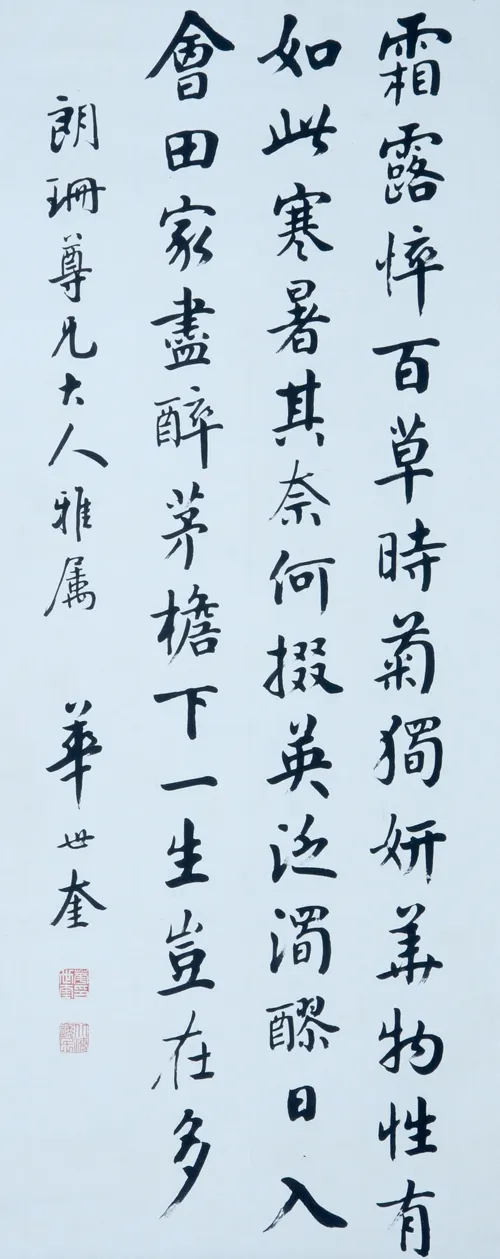 霜露悴百草時菊獨妍華物性有
如此寒暑其奈何掇英泛濁醪日入
會田家盡醉茅檐下一生豈在多
朗珊尊兄大人雅属
華世奎